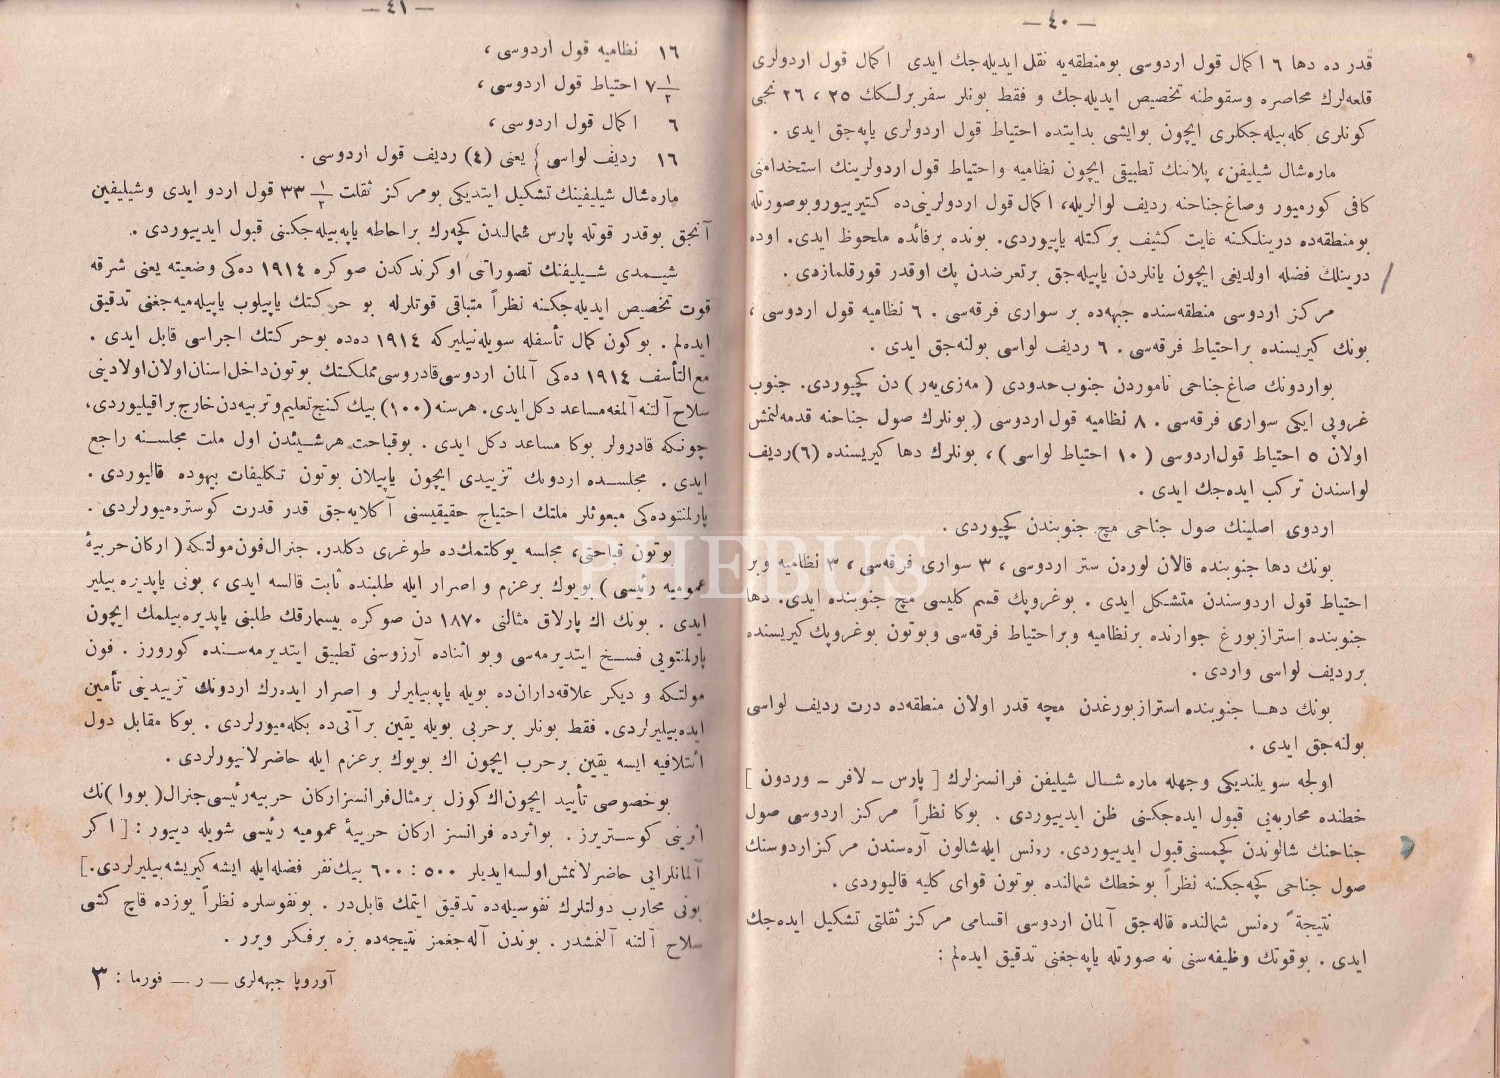 — ٤٠ —
قدر ده دها ٦ اكمال قول اردوسی بومنطقه‌یه نقل ایدیله‌جك ایدی اكمال قول اردولری
قلعه‌لرك محاصره وسقوطنه تخصیص ایدیله‌جك و فقط بونلر سفربرلكك ٢٥ ، ٢٦ نجی
كونلری كله‌بیله‌جكلری ایچون بوایشی بدایتده احتیاط قول اردولری یاپه‌جق ایدی .
ماره‌شال شیلیفن، پلاننك تطبیقی ایچون نظامیه واحتیاط قول اردولرینك استخدامنی
كافی كورمیور وصاغ‌جناحنه ردیف لوالریله، اكمال قول اردولرینی‌ده كتیرییوروبوصورتله
بومنطقه‌ده درینلكنه غایت كثیف بركتله یاپیوردی. بونده برفائده ملحوظ ایدی. اوده
درینلك فضله اولدیغی ایچون یانلردن یاپیله‌جق برتعرضدن پك اوقدر قورقلمازدی .
مركز اردوسی منطقه‌سنده جبهه‌ده بر سواری فرقه‌سی . ٦ نظامیه قول اردوسی ،
بونك كیریسنده براحتیاط فرقه‌سی . ٦ ردیف لواسی بولنه‌جق ایدی .
بواردونك صاغ‌جناحی ناموردن جنوب حدودی ( مه‌زی‌یه‌ر ) دن كچیوردی. جنوب
غروپی ایكی سواری فرقه‌سی . ٨ نظامیه قول اردوسی ( بونلرك صول جناحنه قدمه‌لنمش
اولان ٥ احتیاط قول‌اردوسی ( ١٠ احتیاط لواسی ) ، بونلرك دها كیریسنده (٦) ردیف
لواسندن تركب ایده‌جك ایدی .
اردوی اصلینك صول جناحی مچ جنوبندن كچیوردی .
بونك دها جنوبنده قالان لوره‌ن ستر اردوسی ، ٣ سواری فرقه‌سی ، ٣ نظامیه وبر
احتیاط قول اردوسندن متشكل ایدی . بوغروپك قسم كلیسی مچ جنوبنده ایدی. دها
جنوبنده استرازبورغ جوارنده برنظامیه وبراحتیاط فرقه‌سی وبوتون بوغروپك كیریسنده
برردیف لواسی واردی .
بونك دهــا جنوبنده استرازبورغدن مچه قدر اولان منطقه‌ده درت ردیف لواسی
بولنه‌جق ایدی .
اولجه سویلندیكی وجهله ماره‌شــال شیلیفن فرانسزلرك [ پارس – لافر – وردون ]
خطنده محاربه‌یی قبول ایده‌جكنی ظن ایدییوردی . بوكا نظراً مركز اردوسی صول
جناحنك شالوندن كچمسنی قبول ایدییوردی. ره‌نس ایله‌شالون آره‌سندن مركزاردوسنك
صول جناحی كچه‌جكنه نظراً بوخطك شمالنده بوتون قوای كلیه قالیوردی .
نتیجةً ره‌نس شمالنده قاله‌جق آلمان اردوسی اقسامی مركز ثقلتی تشكیل ایده‌جك
ایدی . بوقوتك وظیفه‌سنی نه صورتله یاپه‌جغنی تدقیق ایده‌لم :
— ٤١ —
١٦ نظامیه قول اردوسی ،
٧ ١/٢ احتیاط قول اردوسی ،
٦ اكمال قول اردوسی ،
١٦ ردیف لواسی } یعنی (٤) ردیف قول اردوسی .
ماره‌شال شیلیفینك تشكیل ایتدیكی بومركز ثقلت ٣٣ ١/٢ قول اردو ایدی وشیلیفین
آنجق بوقدر قوتله پارس شمالندن كچه‌رك براحاطه یاپه‌بیله‌جكنی قبول ایدییوردی .
شیــمدی شــیلیفنك تصوراتنی اوكرندكدن صوكره ١٩١٤ ده‌كی وضعیته یعنی شرقه
قوت تخصیص ایدیله‌جكنه نظراً متباقی قوتلرله بو حركتك یاپیلوب یاپیله‌میه‌جغنی تدقیق
ایده‌لم . بوكون كمال تأسفله سویله‌نیلیركه ١٩١٤ ده‌ده بوحركتك اجراسی قابل ایدی .
مع‌التأسف ١٩١٤ ده‌كی آلمان اردوسی قادروسی مملكتك بوتون‌داخل‌اسنان‌اولان‌اولادینی
سلاح آلتنه آلمغه‌مساعد دكل‌ایدی. هرسنه (١٠٠) بیك كنج‌تعلیم وتربیه‌دن خارج براقیلیوردی،
چونكه قادرولر بوكا مساعد دكل ایدی . بوقباحت هرشیئدن اول ملت مجلسنه راجع
ایدی . مجلســده اردونك تزییدی ایچون یاپیلان بوتون تكلیفات بیهوده قالیوردی .
پارلمنتوده‌كی مبعوثلر ملتك احتیاج حقیقیسنی آكلایه‌جق قدر قدرت كوستره‌میورلردی .
بوتون قباحتی، مجلسه یوكلتمك‌ده طوغری دكلدر. جنرال‌فون‌مولتكه ( اركان حربیهٔ
عمومیه رئیسی ) بویوك برعزم و اصرار ایله طلبنده ثابت قالسه ایدی ، بونی یاپدیره‌بیلیر
ایدی . بونك اك پارلاق مثالنی ١٨٧٠ دن صوكره بیسمارقك طلبنی یاپدیره‌بیلمك ایچون
پارلمنتویی فســخ ایتدیرمه‌سی وبو اثناده آرزوسنی تطبیق ایتدیرمه‌ســنده كورورز . فون
مولتكه و دیكر علاقه‌داران‌ده بویله یاپه‌بیلیرلر و اصرار ایده‌رك اردونك تزییدینی تأمین
ایده‌بیلیرلردی. فقط بونلر برحربی بویله یقین برآتی‌ده بكله‌میورلردی . بوكا مقابل دول
ائتلافیه ایسه یقین برحرب ایچون اك بویوك برعزم ایله حاضرلانیورلردی .
بوخصوصی تأیید ایچون‌اك كوزل برمثال‌فرانسزاركان حربیه‌رئیسی‌جنرال ( بووا ) نك
اثرینی كوســتریرز . بواثرده فرانسز اركان حربیهٔ عمومیه رئیسی شویله دییور : [ اكر
آلمانلرایی حاضرلانمش‌اولسه‌ایدیلر ٥٠٠ : ٦٠٠ بیك‌نفر فضله‌ایله ایشه كیریشه‌بیلیرلردی.]
بونی محارب دولتلرك نفوسیله‌ده تدقیق ایتمك قابل‌در . بونفوسلره نظراً یوزده قاچ كشی
سلاح آلتنه آلنمشدر . بوندن آله‌جغمز نتیجه‌ده بزه برفكر ویرر .
آوروپا جبهه‌لری — ر — فورما : ٣
PHEBUS